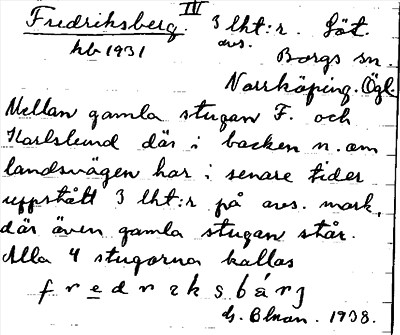 III
Fredriksberg. 3 lht:r. Löt.
hb 1931 avs. Borgs sn.
Norrköping. Ögl.
Mellan gamla stugan F. och
Karlslund där i backen n. om
landsvägen har i senare tider
uppstått 3 lht:r på avs. mark,
där även gamla stugan står.
Alla 4 stugorna kallas
fredrɩksbárj
1938.